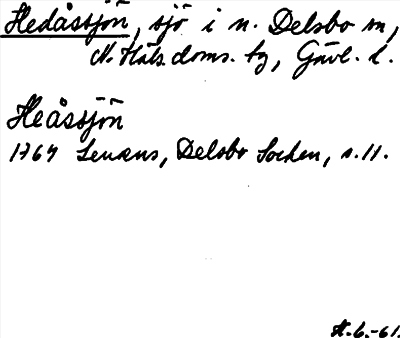 Hedåssjön, sjö i n. Delsbo sn,
N. Häls. doms. tg, Gävl. l.
Heåssjön
1764 Lenæus, Delsbo Socken, s. 11.
H.G.-61.